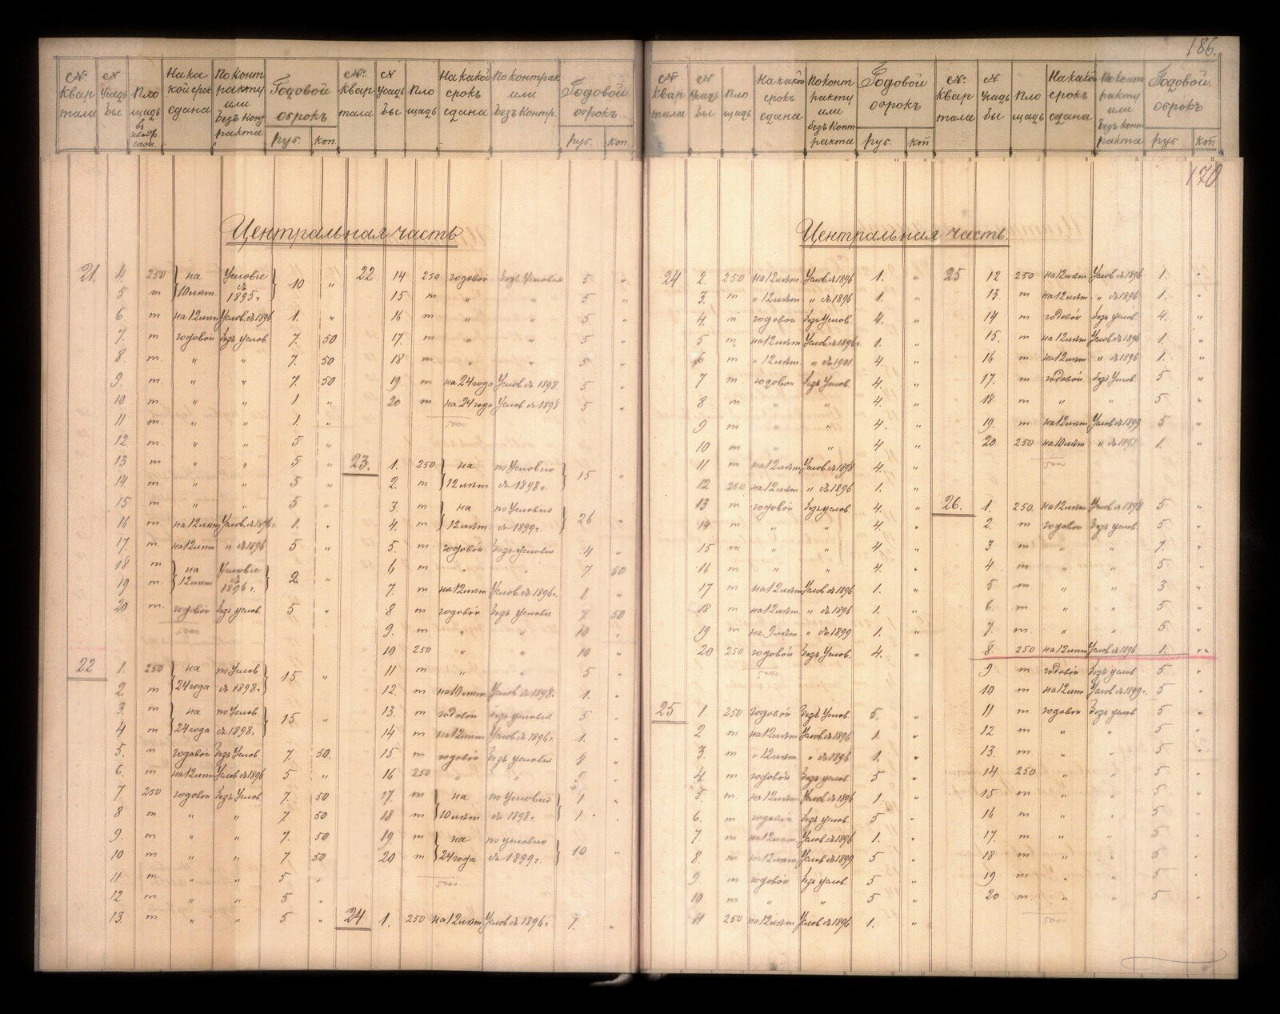 186.
№ Квартала № Усадьбы Площадь в квадр. саж. На какой срок сдана По контракту или безъ контракта Годовой оброкъ руб. коп. № Квартала № Усадьбы Площадь На какой срокъ сдана По контрак. или безъ контр. Годовой оброкъ руб. коп.
№ Квартала № Усадьбы Площадь На какой срокъ сдана По контракту или безъ контракта Годовой оброкъ руб. коп № Квартала № Усадьбы Площадь На какой срокъ сдана По контракту или безъ контракта Годовой оброкъ руб. коп
170
Центральная часть
21. 4 250 на Условіе 10 „
5 т 10 лѣт съ 1895 г.
6 т на 12 лѣт Услов. съ 1896 1. „
7. т годовой безъ услов 7. 50
8. т „ „ 7. 50
9. т. „ „ 7. 50
10 т „ „ 1 „
11 т. „ „ 1. „
12 т. „ „ 5 „
13 т „ „ 5 „
14 т. „ „ 5 „
15 т „ „ 5 „
16 т на 12 лѣт Услов. съ 1896. 1. „
17. т на 12 лѣт „ съ 1896 5 „
18 т на Условіе 2 „
19 т 12 лѣт съ 1896 г.
20 т. годовой безъ услов. 5 „
5000
22 1. 250 на по Услов 15 „
2 т 24 года съ 1898 г.
3. т на по Услов 15 „
4 т 24 года съ 1898.
5. т годовой безъ Услов 7. 50.
6. т на 12 лѣт Услов съ 1896 5 „
7 250 годовой безъ Услов 7. 50
8 т „ „ 7 50
9. т „ „ 7. 50
10. т „ „ 7. 50
11 т. „ „ 5 „
12 т „ „ 5 „
13. т „ „ 5 „
22 14 250 годовой безъ Условія 5 „
15 т „ „ 5 „
16 т „ „ 5 „
17. т „ „ 5 „
18 т „ „ 5 „
19 т на 24 года Услов съ 1898 5 „
20 т на 24 года Услов съ 1898 5 „
5000
23. 1. 250 на по Условію 15 „
2. т 12 лѣт съ 1898 г.
3. т на по Условію 26 „
4. т 12 лѣт съ 1899 г.
5. т годовой безъ условія 4 „
6 т „ „ 7 50
7. т на 12 лѣт Услов съ 1896 г. 1 „
8 т годовой безъ условія 7 50
9. т „ „ 10 „
10 250 „ „ 10 „
11 т „ „ 5 „
12 т на 10 лѣт Услов съ 1898. 1. „
13. т годовой безъ условія 5 „
14 т на 12 лѣт Услов съ 1896 г. 1. „
15 т годовой безъ условія 4 „
16 250 „ „ 5 „
17. т на по Условію 1 „
18 т 10 лѣт съ 1898 г. 1 „
19 т на по условію 10 „
20 т 24 года съ 1899 г.
5000
24 1. 250 на 12 лѣт Услов съ 1896 г. 7. „
Центральная часть
24 2. 250 на 12 лѣт Услов съ 1896 1. „
3. т „ 12 лѣт „ съ 1896 1. „
4. т годовой безъ Услов 4. „
5 т. на 12 лѣт Услов съ 1896 г. 1. „
6 т „ 12 лѣт. „ съ 1901 4. „
7 т годовой безъ Услов. 4. „
8 т „ „ 4. „
9 т „ „ 4 „
10 т „ „ 4 „
11 т на 12 лѣт Услов съ 1898 4. „
12 250 на 12 лѣт „ съ 1896 1. „
13 т годовой безъ услов 4. „
14 т „ „ 4. „
15 т „ „ 4 „
16 т „ „ 4. „
17 т на 12 лѣт Услов съ 1896 1. „
18 т на 12 лѣт „ съ 1896 1. „
19 т на 9 лѣт „ съ 1899 1. „
20 250 годовой безъ Услов. 4. „
5000
25 1 250 годовой безъ Услов. 5. „
2 т на 12 лѣт Услов съ 1896 1. „
3. т „ 12 лѣт „ съ 1896 1. „
4. т годовой безъ услов 5 „
5. т. на 12 лѣт Услов съ 1896 1. „
6. т годовой безъ услов 5 „
7. т на 12 лѣт Услов съ 1896 1. „
8. т на 12 лѣт Услов съ 1899 5 „
9 т годовой безъ услов 5 „
10 т „ „ 5 „
11 250 на 12 лѣт Услов съ 1896 1. „
25 12 250 на 12 лѣт Услов съ 1896 1. „
13. т на 12 лѣт „ съ 1896 1. „
14 т годовой безъ услов. 4. „
15. т на 12 лѣт Услов съ 1896 1. „
16 т на 12 лѣт „ съ 1896 1. „
17. т годовой безъ Услов. 5 „
18 т „ „ 5 „
19. т на 12 лѣт Услов съ 1899 5 „
20 250 на 10 лѣт „ съ 1898 1. „
5000
26. 1. 250. на 12 лѣт Услов съ 1898 5 „
2. т годовой безъ услов 5 „
3 т „ „ 7. „
4 т „ „ 5 „
5 т „ „ 3. „
6. т „ „ 5 „
7. т. „ „ 5 „
8. 250 на 12 лѣт Услов съ 1896 1. „
9 т годовой безъ услов 5 „
10 т на 12 лѣт Услов съ 1899 г. 5 „
11 т годовой безъ услов 5 „
12 т „ „ 5 „
13. т „ „ 5 „
14 250 „ „ 5 „
15 т „ „ 5 „
16 т „ „ 5 „
17. т „ „ 5 „
18 т „ „ 5 „
19 т „ „ 5 „
20 т „ „ 5 „
5000